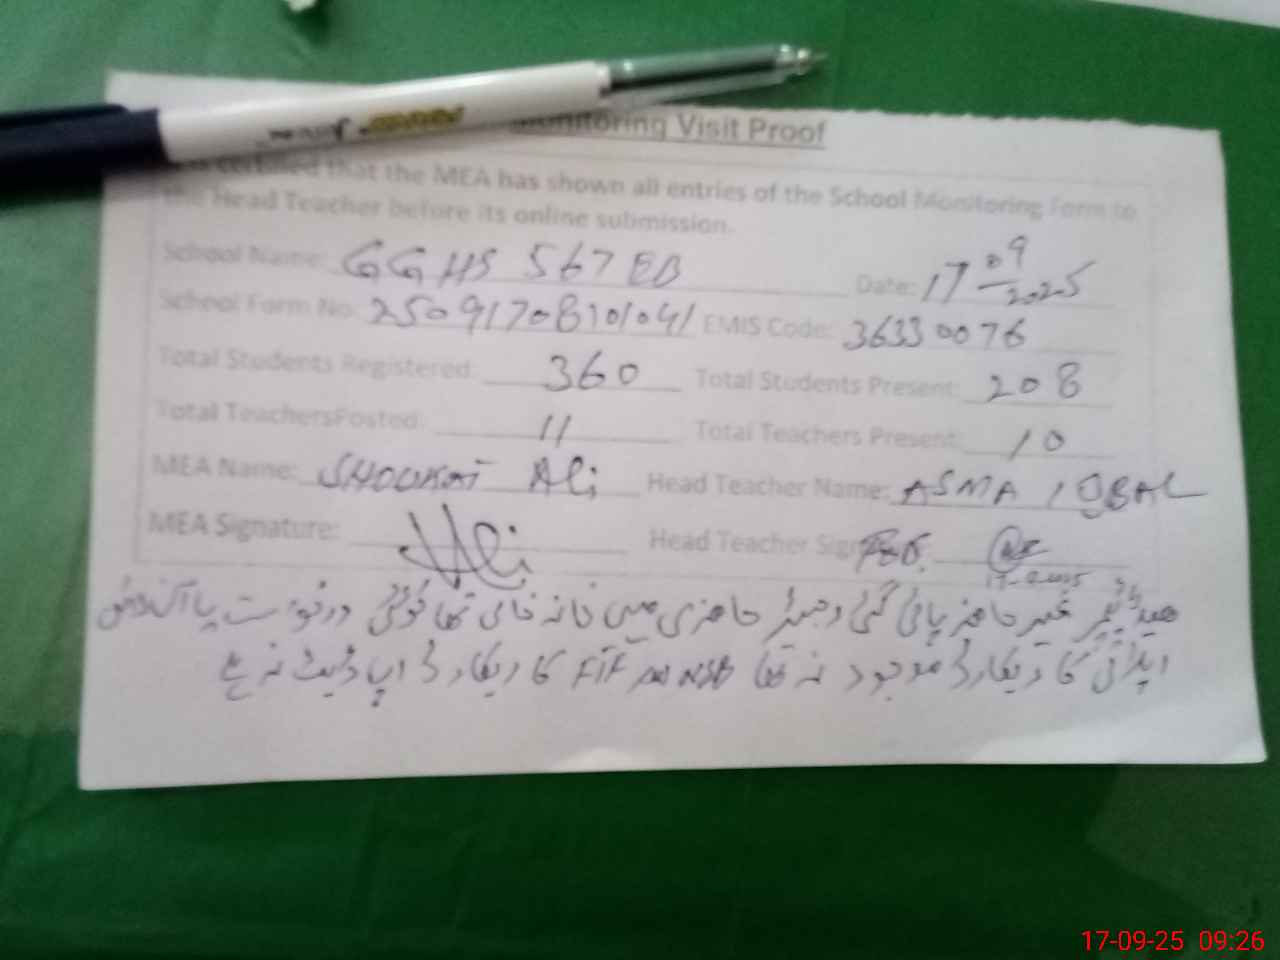 Monitoring Visit Proof
certified that the MEA has shown all entries of the School Monitoring Form to
the Head Teacher before its online submission.
School Name: GGHS 567 EB Date: 17 09 2025
School Form No: 25091708701041 EMIS Code: 36330076
Total Students Registered: 360 Total Students Present: 208
Total TeachersPosted: 11 Total Teachers Present: 10
MEA Name: SHOUKAT Ali Head Teacher Name: ASMA IQBAL
MEA Signature: Ali Head Teacher
ہیڈ ٹیچر غیر حاضر پائی گئی رجسٹر حاضری میں خانہ خالی تھا کوئی درخواست یا
کا ریکارڈ موجود نہ تھا NSB FTF کا ریکارڈ اپ ڈیٹ نہ ہے
17-09-25 09:26